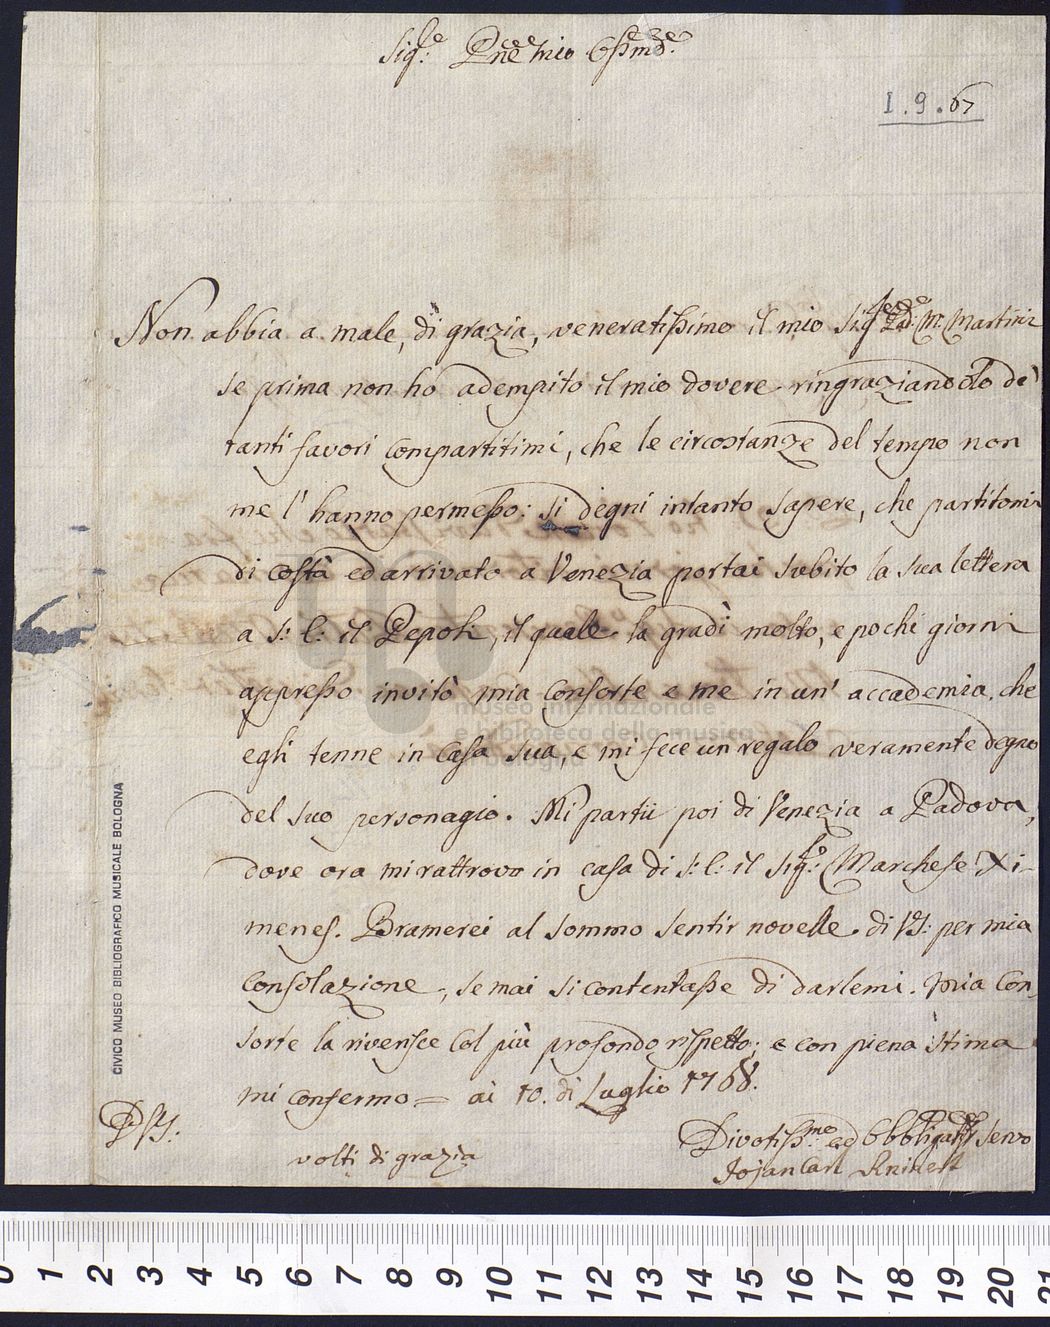 Sig.re Pne mio Ossmo:
I.9.67
Non abbia a male, di grazia, veneratissimo il mio Sigre Pdre: M: Martini
se prima non ho adempito il mio dovere ringraziandolo de'
tanti favori compartitimi, che le circostanze del tempo non
me l'hanno permesso: si degni intanto sapere, che partitomi
di costà ed arrivato a Venezia portai subito la sua lettera
a S: E: il Pepoli, il quale la gradì molto, e pochi giorni
appresso invitò mia Consorte e me in un' accademia, che
egli tenne in Casa sua, e mi fece un regalo veramente degno
del suo personagio. Mi partii poi di Venezia a Padova,
dove ora mi rattrovo in casa di S: E: il Sigr: Marchese Xi-
menes. Bramerei al sommo sentir novelle di VS: per mia
Consolazione, se mai si contentasse di darlemi. Mia Con,
sorte la riverisce Col più profondo rispetto; e con piena stima
mi confermo = ai 10. di Luglio 1768.
D VS:
volti di grazia
Divotissmo ed Obbligatss Servo
Johan Carl
CIVICO MUSEO BIBLIOGRAFICO MUSICALE BOLOGNA
museo internazionale
e biblioteca della musica
di bologna
0 1 2 3 4 5 6 7 8 9 10 11 12 13 14 15 16 17 18 19 20 21